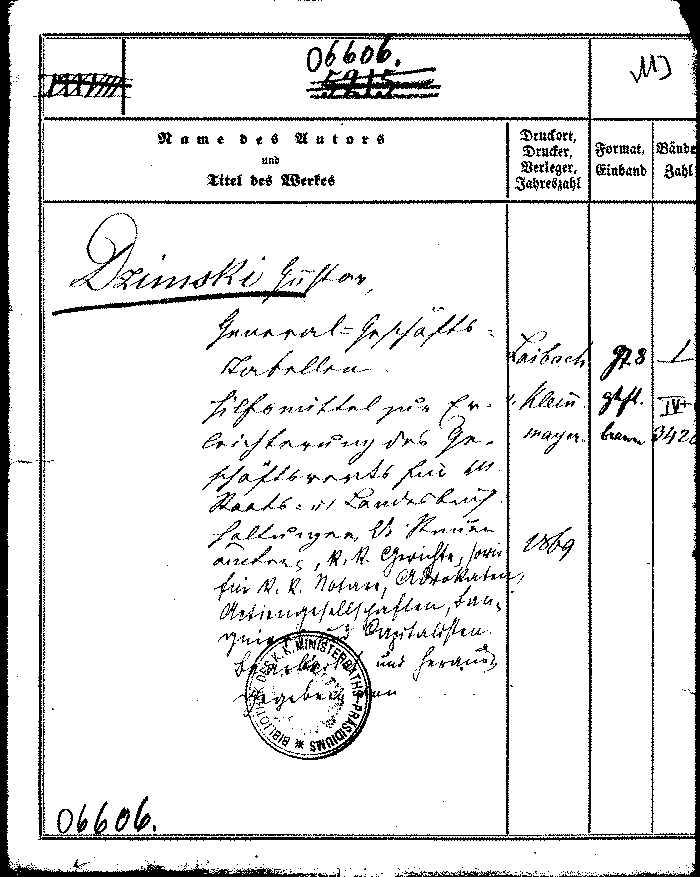 06606.
5915
Name des Autors
und
Titel des Werkes
Druckort,
Drucker,
Verleger,
Jahreszahl
Format,
Einband
Bände
Zahl
Dzimski Gustav,
General-Geschäfts-
Tabellen.
Hilfsmittel zur Er-
leichterung des Ge-
schäftsverkehrs für
Staats- u. Landesbuch-
haltungen, k. k. Steuer-
ämter, k. k. Gerichte, sowie
für k. k. Notare, Advokaten,
Actiengesellschaften, Ban-
quiers und Capitalisten.
bearbeitet und heraus-
gegeben von
Laibach
v. Klein
mayer.
1869
gr. 8
geh.
braun
1
IV+
342
BIBLIOTHEK DES K.K. MINISTERRATHS-PRÄSIDIUMS
06606.